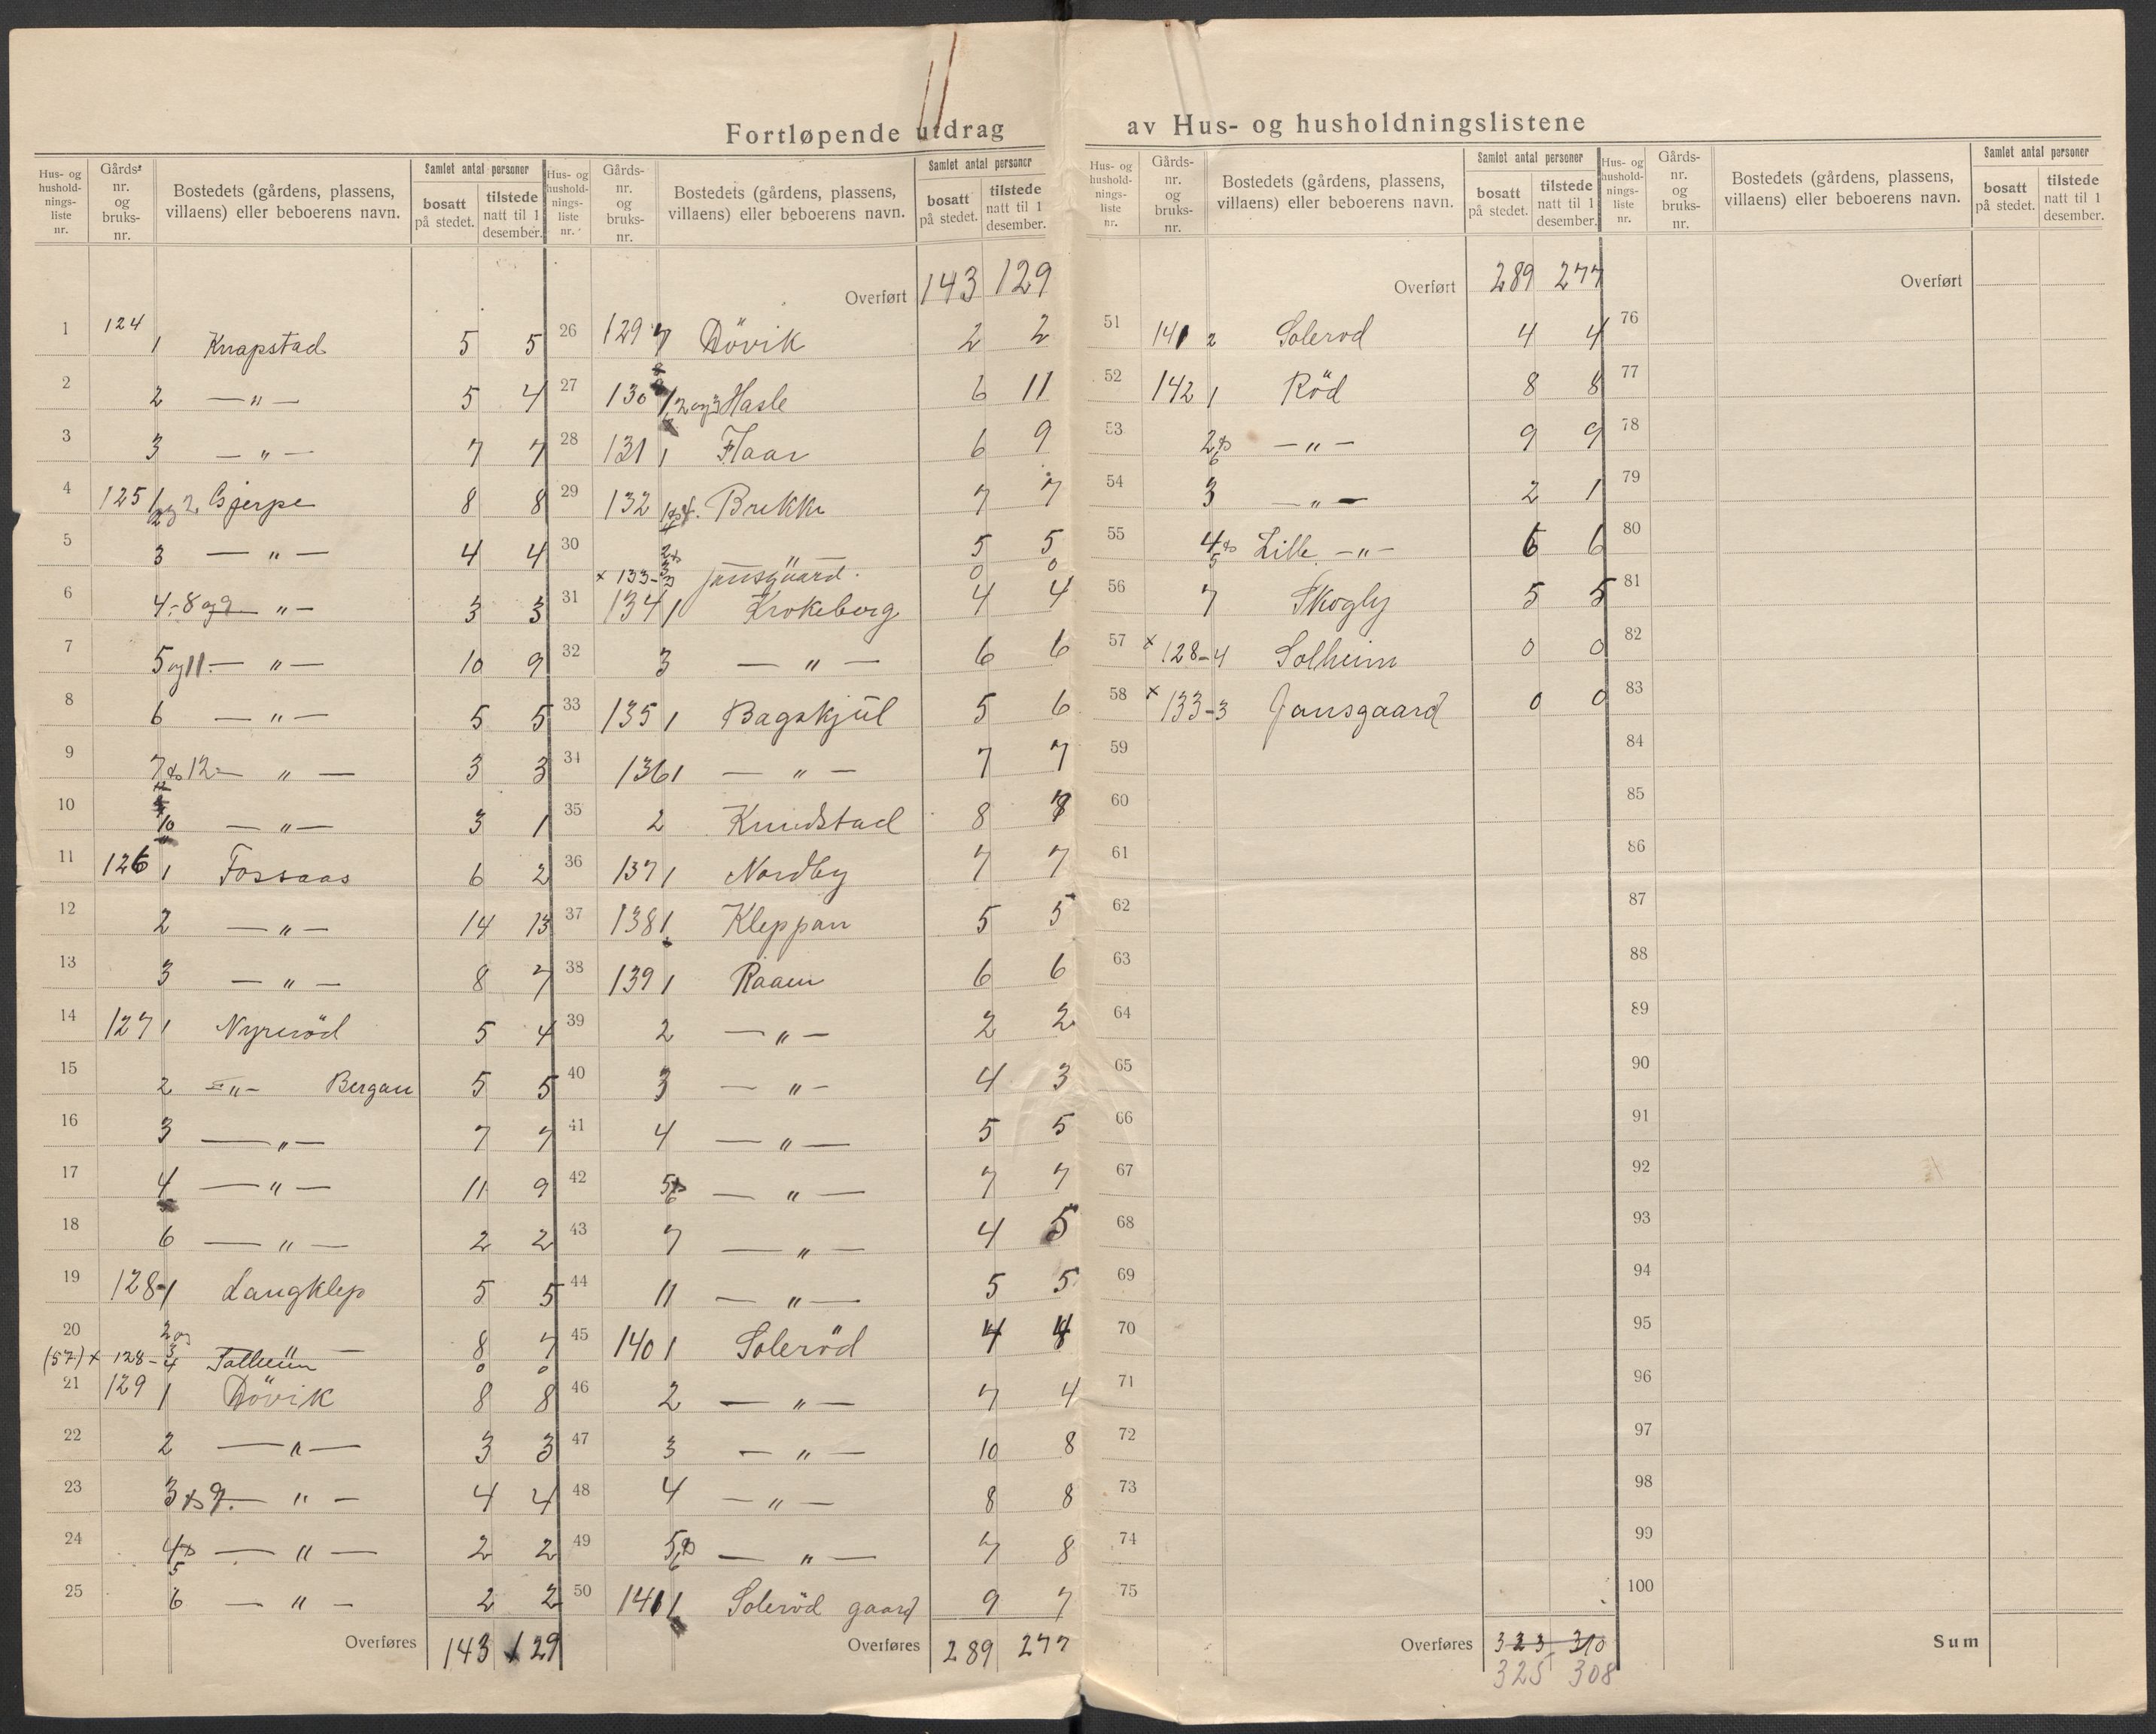 Fortløpende utdrag av Hus- og husholdningslistene
Hus- og hushold- nings- liste nr. | Gårds- nr. og bruks- nr. | Bostedets (gårdens, plassens, villaens) eller beboerens navn. | Samlet antal personer | bosatt på stedet. | tilstede natt til 1 desember.
1 124 1 Knapstad 5 5
2 2 — " — 5 4
3 3 — " — 7 7
4 125 1 og 2 Gjerpe 8 8
5 3 — " — 4 4
6 4-8 og 9 — " — 3 3
7 5 og 11 — " — 10 9
8 6 — " — 5 5
9 7 & 12 — " — 3 3
10 10 — " — 3 1
11 126 1 Fossaas 6 2
12 2 — " — 14 13
13 3 — " — 8 7
14 127 1 Nyrerød 5 4
15 2 — " — Bergan 5 5
16 3 — " — 7 7
17 4 — " — 11 9
18 6 — " — 2 2
19 128-1 Langklep 5 5
20 2 og 3 — 8 7
(57) x 128-4 Solheim 0 0
21 129 1 Dövik 8 8
22 2 — " — 3 3
23 3 & 9. — " — 4 4
24 4 & 5 — " — 2 2
25 6 — " — 2 2
Overføres 143 129
Hus- og hushold- nings- liste nr. | Gårds- nr. og bruks- nr. | Bostedets (gårdens, plassens, villaens) eller beboerens navn. | Samlet antal personer | bosatt på stedet. | tilstede natt til 1 desember.
Overført 143 129
26 129 7 Dövik 2 2
27 130 1, 2 og 3 Hasle 6 11
28 131 1 Haar 6 9
29 132 1 & 4 Brekke 7 7
30 2 & 3 — " — 5 5
x 133-3 Jansgaard. 0 0
31 134 1 Krokeborg 4 4
32 3 — " — 6 6
33 135 1 Bagskjul 5 6
34 136 1 — " — 7 7
35 2 Knudstad 8 8
36 137 1 Nordby 7 7
37 138 1 Kleppan 5 5
38 139 1 Raaen 6 6
39 2 — " — 2 2
40 3 — " — 4 3
41 4 — " — 5 5
42 5 & 6 — " — 7 7
43 7 — " — 4 5
44 11 — " — 5 5
45 140 1 Solerød 4 4
46 2 — " — 7 4
47 3 — " — 10 8
48 4 — " — 8 8
49 5 & 6 — " — 7 8
50 141 1 Solerød gaard 9 7
Overføres 289 277
Hus- og hushold- nings- liste nr. | Gårds- nr. og bruks- nr. | Bostedets (gårdens, plassens, villaens) eller beboerens navn. | Samlet antal personer | bosatt på stedet. | tilstede natt til 1 desember.
Overført 289 277
51 141 2 Solerod 4 4
52 142 1 Röd 8 8
53 2 & 6 — " — 9 9
54 3 — " — 2 1
55 4 & 5 Lille — " — 6 6
56 7 Skogly 5 5
57 x 128-4 Solheim 0 0
58 x 133-3 Jansgaard 0 0
59
60
61
62
63
64
65
66
67
68
69
70
71
72
73
74
75
Overføres 323 310
325 308
Hus- og hushold- nings- liste nr. | Gårds- nr. og bruks- nr. | Bostedets (gårdens, plassens, villaens) eller beboerens navn. | Samlet antal personer | bosatt på stedet. | tilstede natt til 1 desember.
Overført
76
77
78
79
80
81
82
83
84
85
86
87
88
89
90
91
92
93
94
95
96
97
98
99
100
Sum